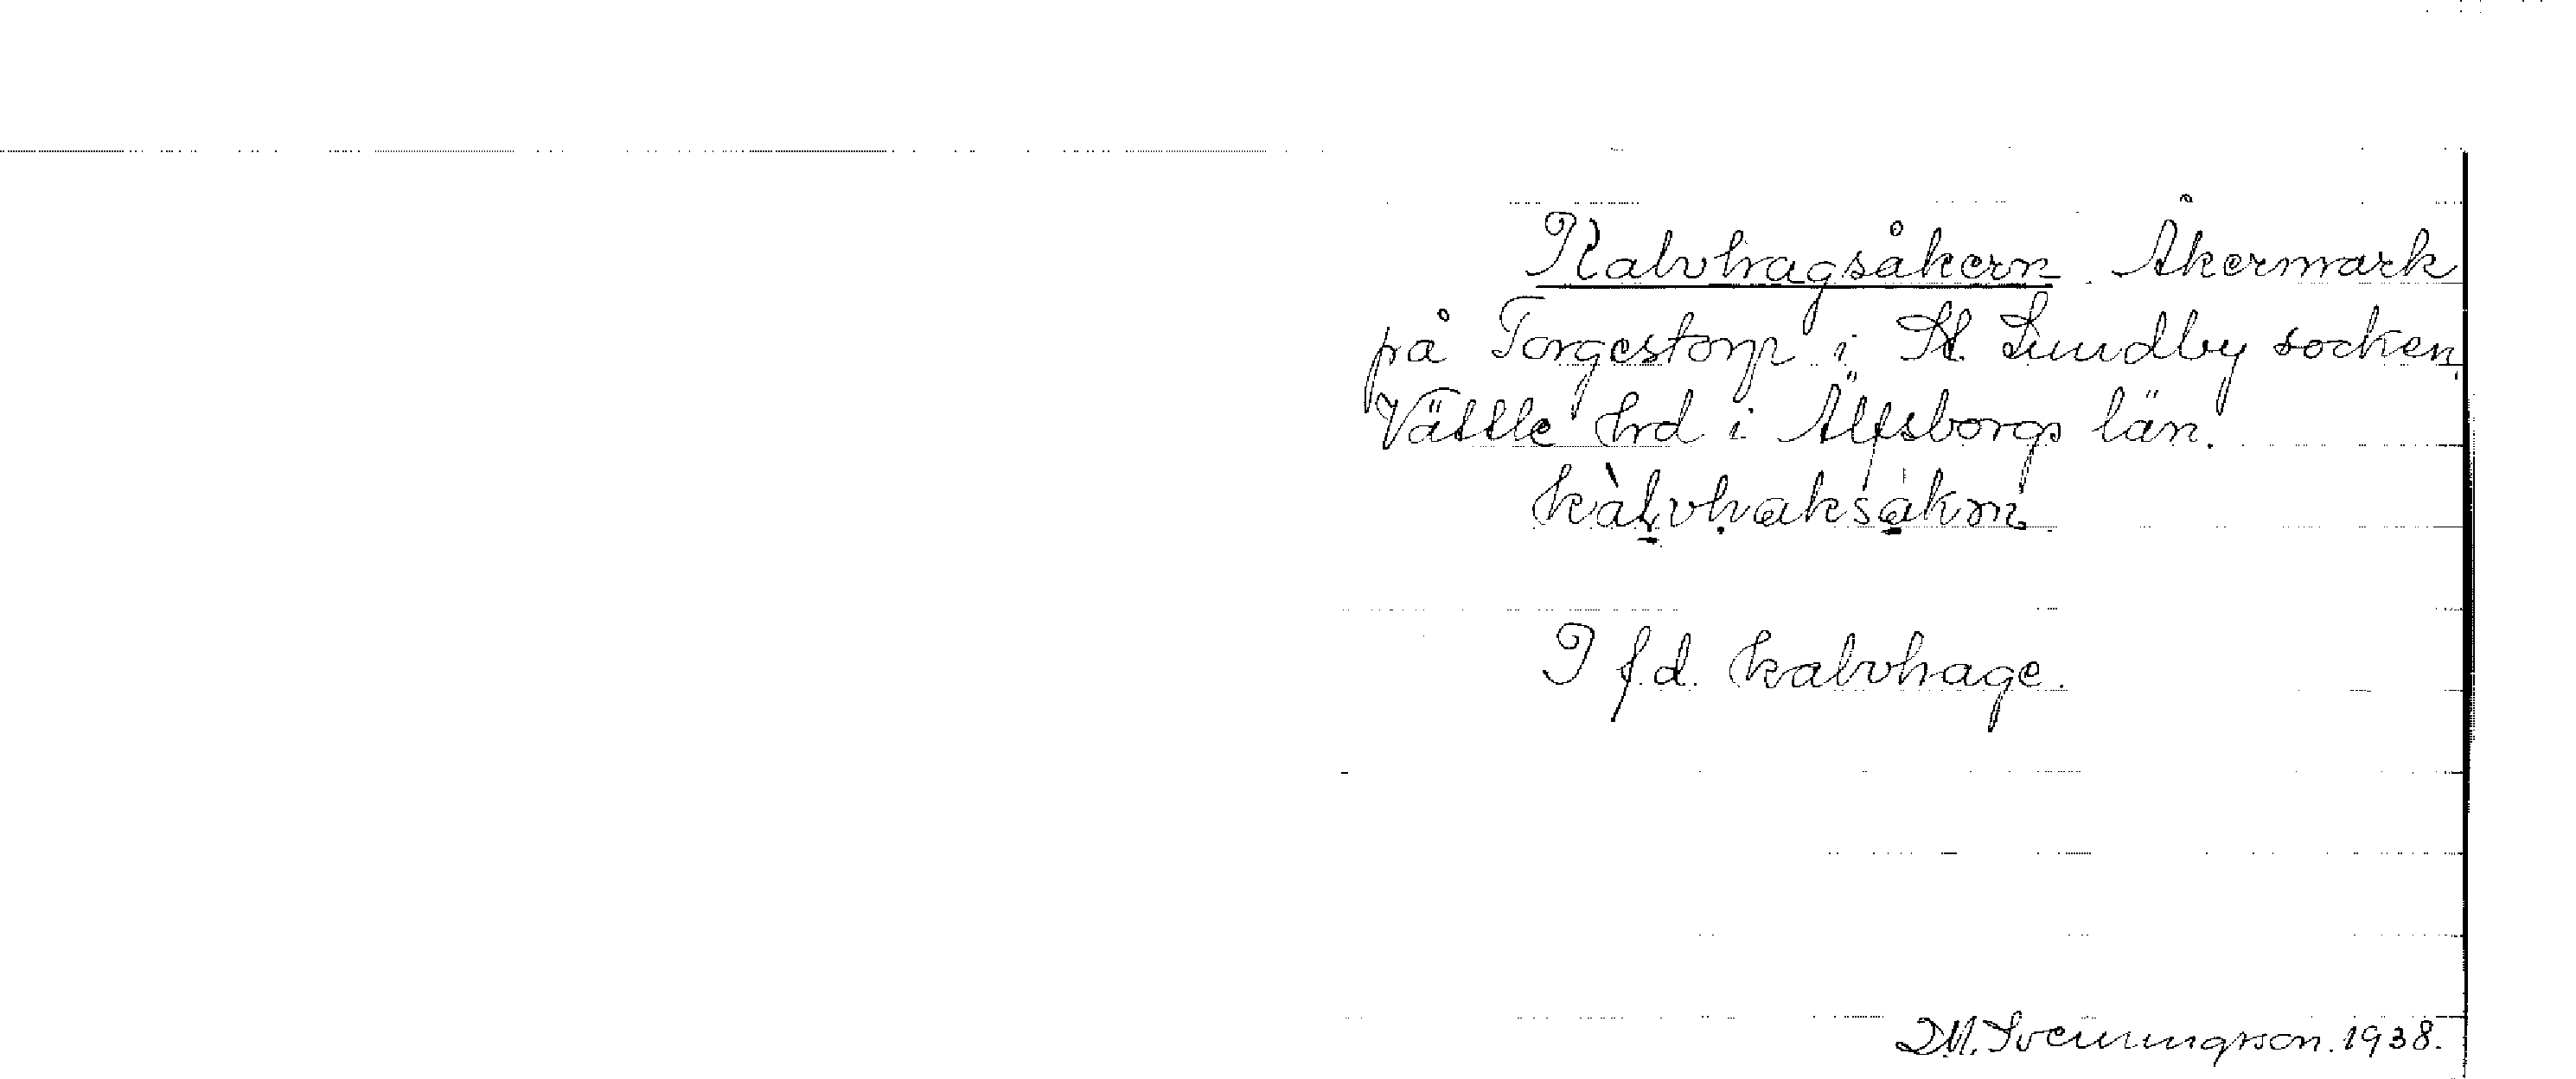 Kalvhagsåkern Åkermark
på Torgestorp i St. Lundby socken,
Vättle hrd i Älfsborgs län.
kàlvhaksåkṇ
I f.d. kalvhage.
D.M. Svenningsson. 1938.